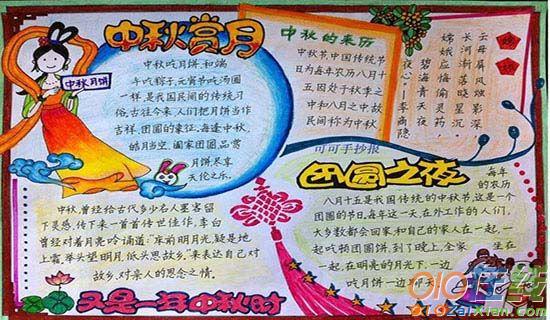 中秋赏月
中秋月饼
中秋吃月饼,和端
午吃粽子、元宵节吃汤圆
一样,是我国民间的传统习
俗。古往今来,人们把月饼当作
吉祥、团圆的象征,每逢中秋,
皓月当空,阖家团圆,品赏
月饼尽享
天伦之乐。
中秋的来历
中秋节,中国传统节
日,为每年农历八月十
五,因处于秋季之
中和八月之中,故
民间称为中秋
云母屏风烛影深
长河渐落晓星沉
嫦娥应悔偷灵药
碧海青天夜
夜心—李商隐
可可手抄报
团圆之夜
每年
的农历
八月十五是我国传统的中秋节,这是一个
团圆的节日,每年这一天,在外工作的人们,
大多数都会回家,和自己的家人在一起,一
起吃顿团圆饼,到了晚上,全家 坐在一
起,在明亮的月光下,一边
吃月饼一边聊天
中秋,曾经给古代多少名人墨客留
下灵感,传下来一首首传世佳作,李白
曾经对着月亮吟诵道:"床前明月光,疑是地
上霜,举头望明月,低头思故乡。"来表达自己对
故乡,对亲人的思念之情。
又是一年中秋时